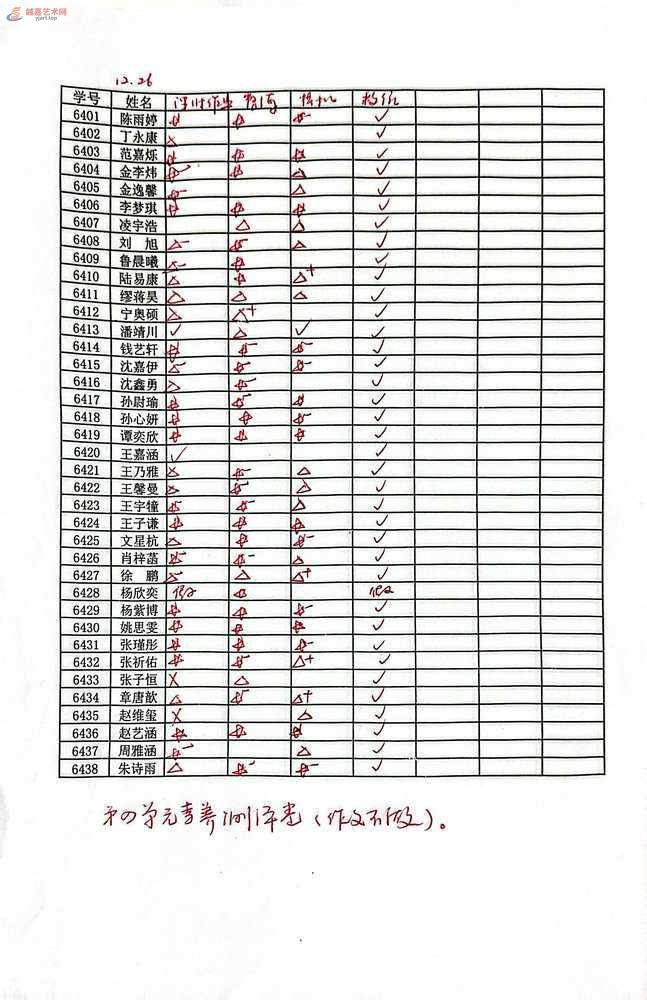 越嘉艺术网
yjart.top
12.26
学号 姓名 课时作业
6401 陈雨婷 ✓
6402 丁永康 × ✓
6403 范嘉烁 ✓
6404 金李炜 △ ✓
6405 金逸馨 △ ✓
6406 李梦琪 ✓
6407 凌宇浩 △ △ ✓
6408 刘旭 △- △ ✓
6409 鲁晨曦 ✓
6410 陆易康 △ △+ ✓
6411 缪蒋昊 △ △ △ ✓
6412 宁奥硕 △ ✓
6413 潘靖川 ✓ △ ✓ ✓
6414 钱艺轩 ✓
6415 沈嘉伊 ✓
6416 沈鑫勇 ✓
6417 孙尉瑜 ✓
6418 孙心妍 ✓
6419 谭奕欣 ✓
6420 王嘉涵 ✓ ✓
6421 王乃雅 △ ✓
6422 王馨曼 △ ✓
6423 王宇橦 △ ✓
6424 王子谦 ✓
6425 文星杭 ✓
6426 肖梓菡 △ ✓
6427 徐鹏 △ △+ ✓
6428 杨欣奕
6429 杨紫博 ✓
6430 姚思雯 ✓
6431 张瑾彤 ✓
6432 张祈佑 △+ ✓
6433 张子恒 × △ ✓
6434 章唐歆 △ △+ ✓
6435 赵维玺 × △ ✓
6436 赵艺涵 ✓
6437 周雅涵 △ ✓
6438 朱诗雨 △ ✓
第四单元素养测评卷（作文不做）。